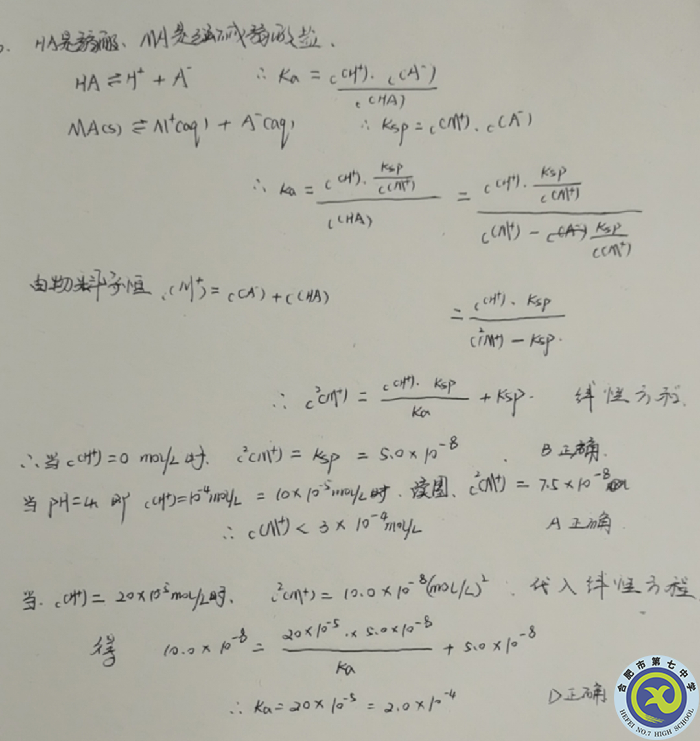 HA是弱酸、MA是强碱弱酸盐.
HA ⇌ H⁺ + A⁻ ∴ Ka = c(H⁺)·c(A⁻) / c(HA)
MA(s) ⇌ M⁺(aq) + A⁻(aq) ∴ Ksp = c(M⁺)·c(A⁻)
∴ Ka = c(H⁺)·Ksp/c(M⁺) / c(HA) = c(H⁺)·Ksp/c(M⁺) / c(M⁺) - Ksp/c(M⁺)
由物料守恒 c(M⁺) = c(A⁻) + c(HA)
= c(H⁺)·Ksp / c²(M⁺) - Ksp.
∴ c²(M⁺) = c(H⁺)·Ksp / Ka + Ksp. 线性方程.
∴当 c(H⁺)=0 mol/L时. c²(M⁺) = Ksp = 5.0×10⁻⁸. B正确.
当pH=4, 即 c(H⁺)=10⁻⁴mol/L = 10×10⁻⁵mol/L时. 读图. c²(M⁺) = 7.5×10⁻⁸
∴ c(M⁺) < 3×10⁻⁴mol/L A正确
当 c(H⁺) = 20×10⁻⁵mol/L时. c²(M⁺) = 10.0×10⁻⁸(mol/L)². 代入线性方程
得 10.0×10⁻⁸ = 20×10⁻⁵×5.0×10⁻⁸ / Ka + 5.0×10⁻⁸
∴ Ka = 20×10⁻⁵ = 2.0×10⁻⁴ D正确
合肥市第七中学
HEFEI NO.7 HIGH SCHOOL